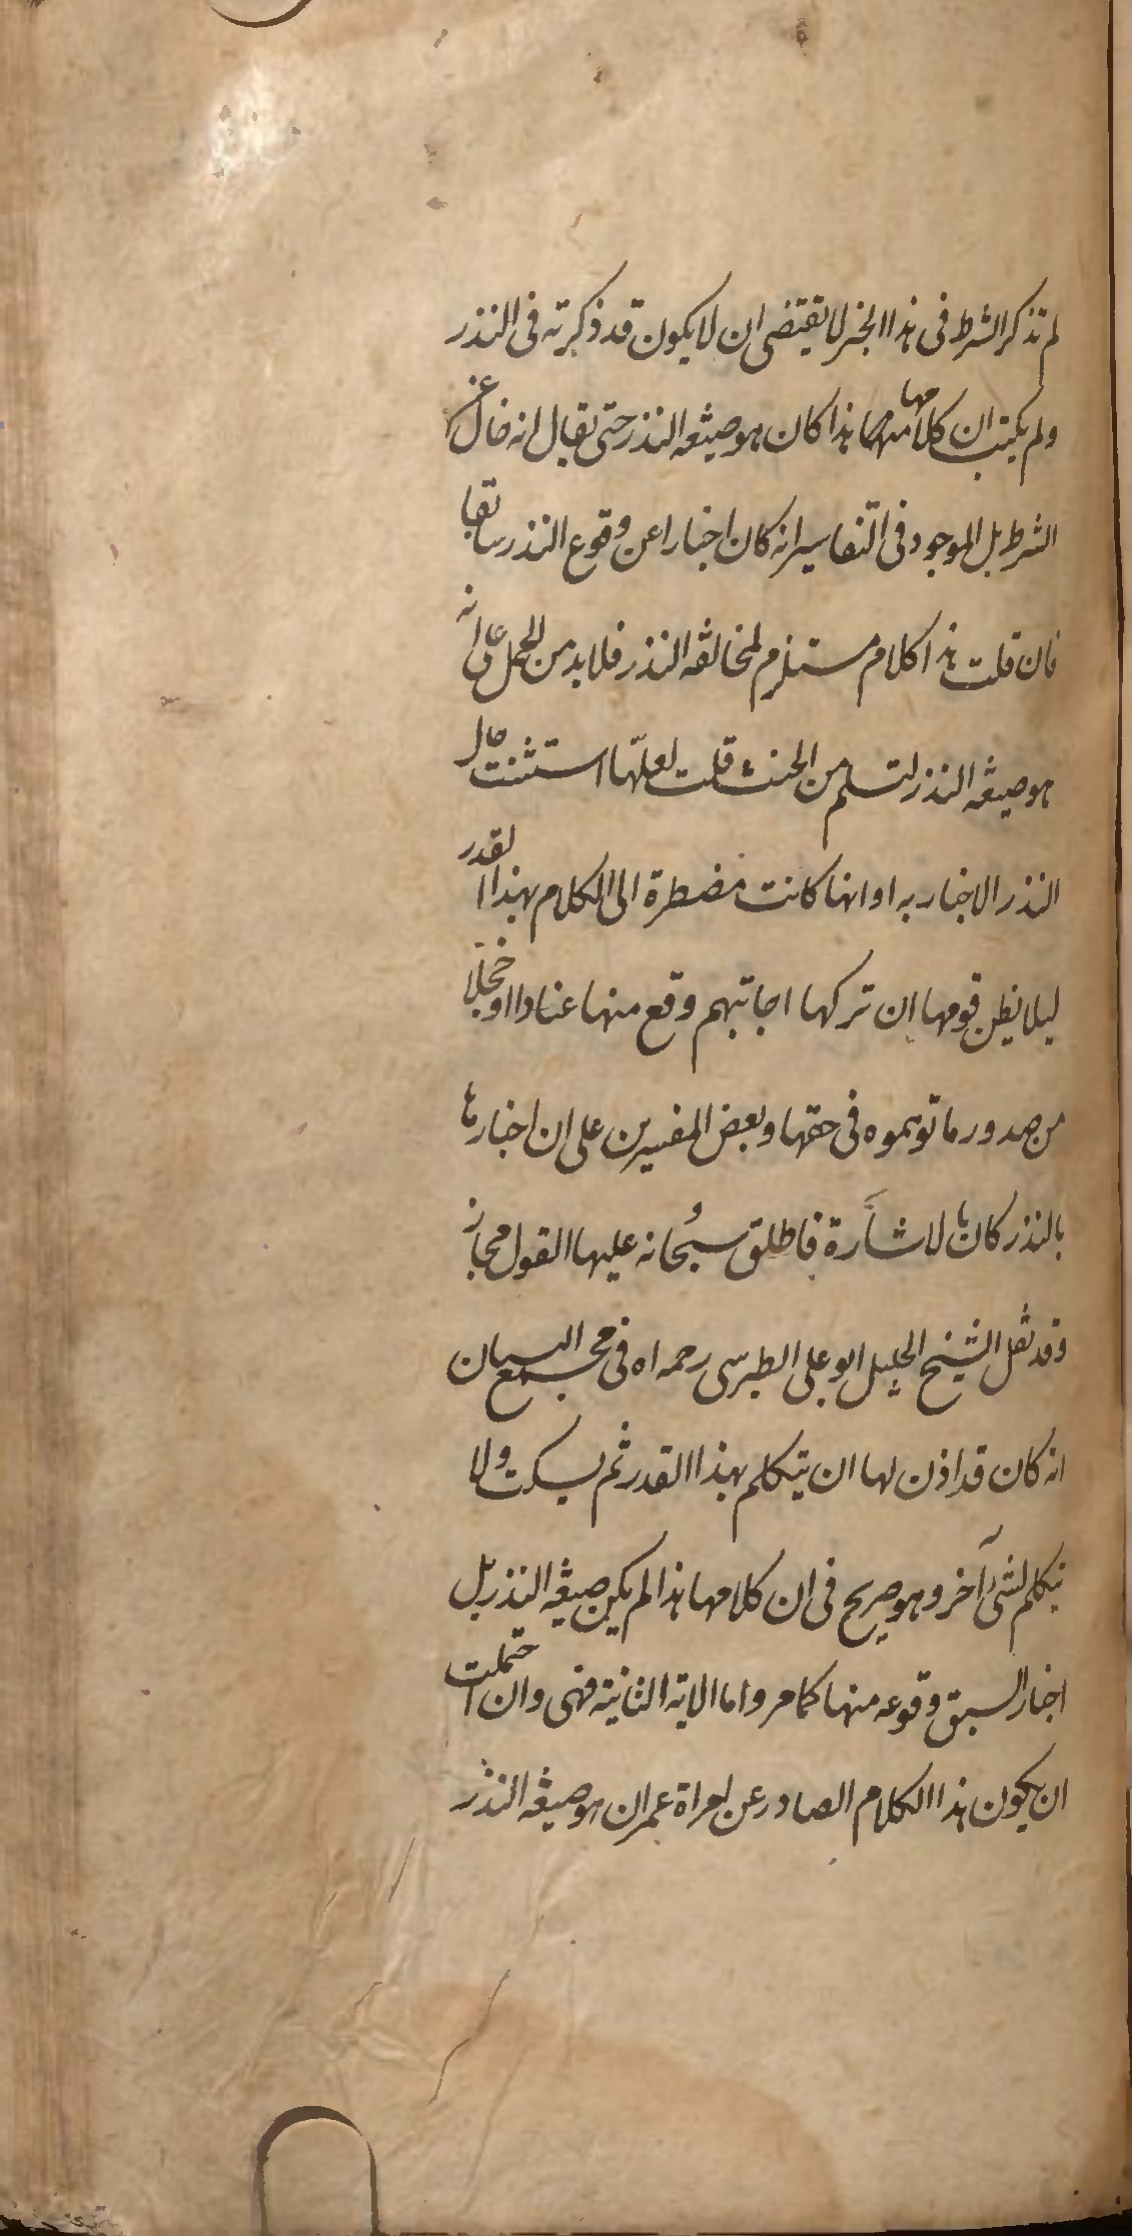 لم تذكر الشرط فى هذا الخبر لا يقتضى ان لا يكون قد ذكرته فى النذر
ولم يثبت ان كلامها هذا كان هو صيغه النذر حتى يقال انه خال عن
الشرط بل الموجود فى التفاسير انه كان اخبارا عن وقوع النذر سابقا
فان قلت هذا كلام مستلزم لمخالفه النذر فلا بد من الحمل على انه
هو صيغه النذر لتسلم من الحنث قلت لعلّها استثنت حال
النذر الاخبار به او انها كانت مضطرة الى الكلام بهذا القدر
ليلا يظن قومها ان تركها اجابتهم وقع منها عنادا او خجلا
من صدور ما توهموه فى حقها وبعض المفسرين على ان اخبارها
بالنذر كان بالاشارة فاطلق سبحانه عليها القول مجاز
وقد نقل الشيخ الجليل ابو على الطبرسى رحمه اه فى مجمع البيان
انه كان قد اذن لها ان يتكلم بهذا القدر ثم يسكت ولا
يتكلم بشئ آخر وهو صريح فى ان كلامها هذا لم يكن صيغه النذر بل
اخبار السبق وقوعه منها كما مر واما الاية الثانية فهى وان احتملت
ان يكون هذا الكلام الصادر عن امراة عمران هو صيغه النذر